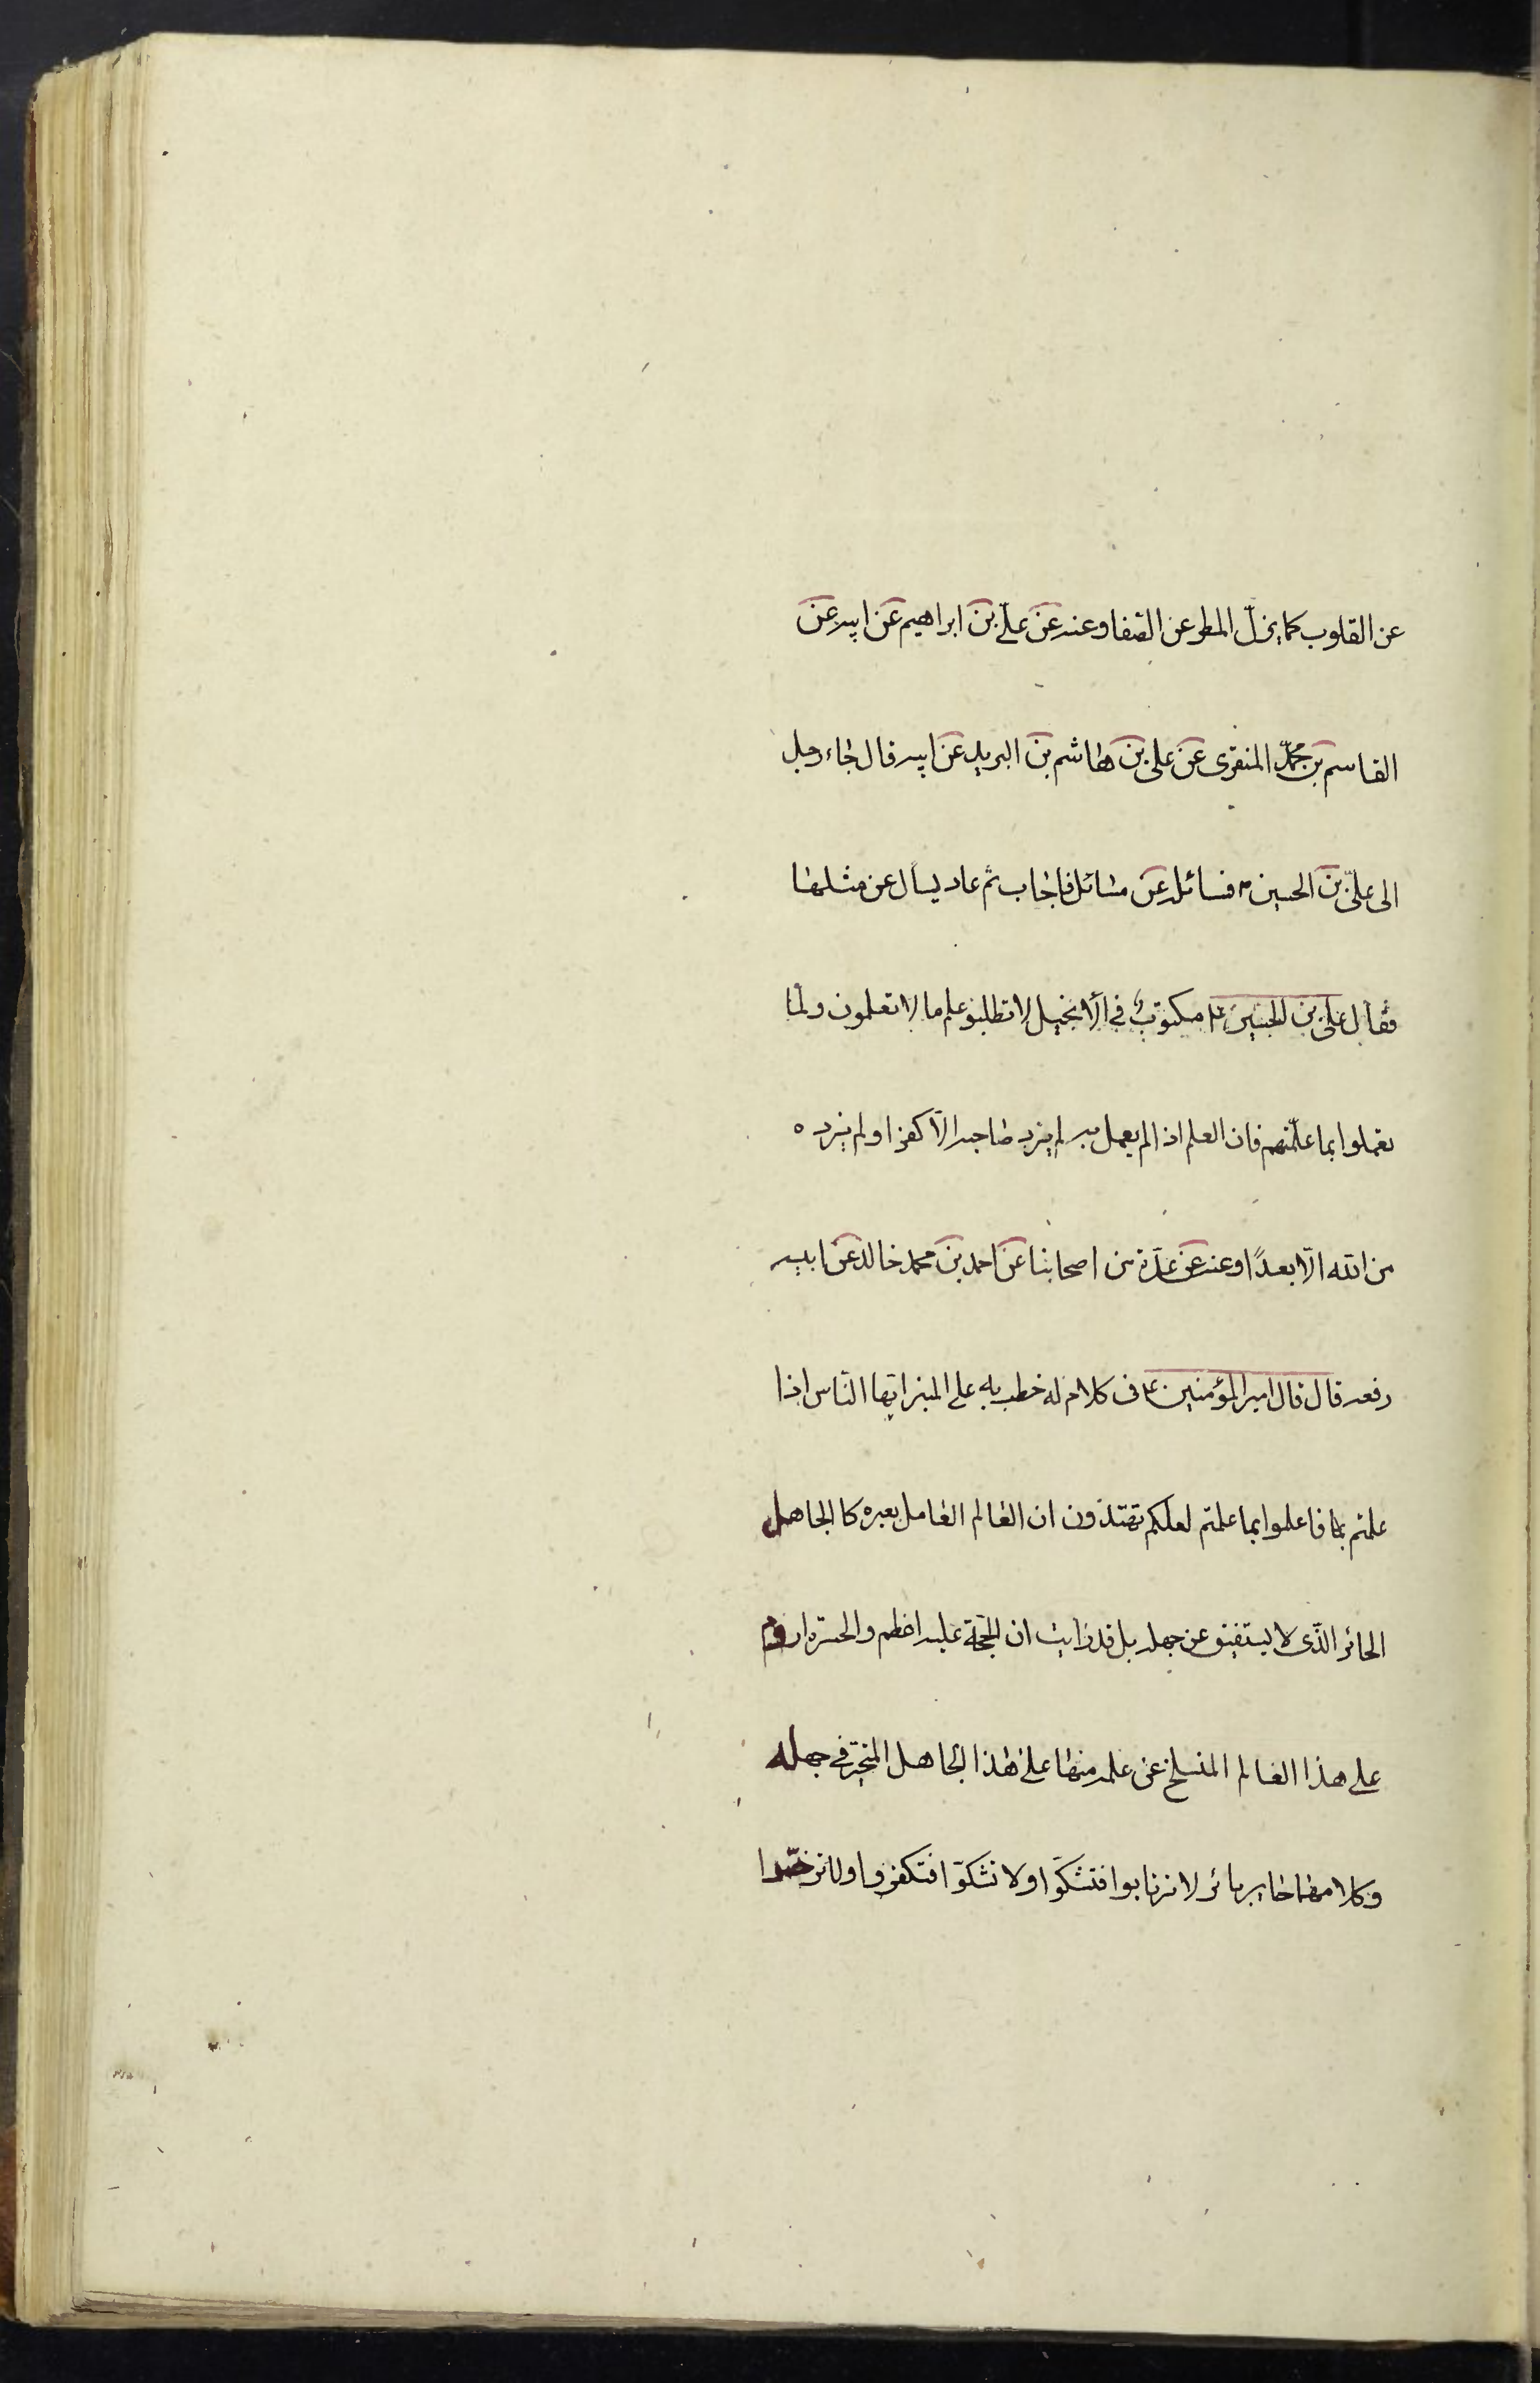 عن القلوب كما يزلّ المطر عن الصّفا وعنه عن علىّ بن ابراهيم عن ابيه عن
القاسم بن محمّد المنقرى عن على بن هاشم بن البريد عن ابيه قال جاء رجل
الى علىّ بن الحسين ع فسائله عن مسائل فاجاب ثم عاد ليسأل عن مثلها
فقال على بن الحسين ع مكتوب في الانجيل لا تطلبوا علم ما لا تعلمون ولمّا
تعملوا بما علمتم فان العلم اذا لم يعمل به لم يزد صاحبه الّا كفرا ولم يزده
من الله الّا بعدًا وعنه عن عدّة من اصحابنا عن احمد بن محمد خالد عن ابيه
رفعه قال قال امير المؤمنين ع فى كلام له خطب به على المنبر ايّها النّاس اذا
علمتم فاعملوا بما علمتم لعلكم تهتدون ان العالم العامل بغيره كالجاهل
الحائر الذّى لا يستفيق عن جهله بل قد رايت ان الحجّة عليه اعظم والحسرة ادوم
على هذا العالم المنسلخ عن علمه منها على هذا الجاهل المتحيّر في جهله
وكلاهما حاير بائر لا ترتابوا فتشكّوا ولا تشكّوا فتكفروا ولا ترخّصوا